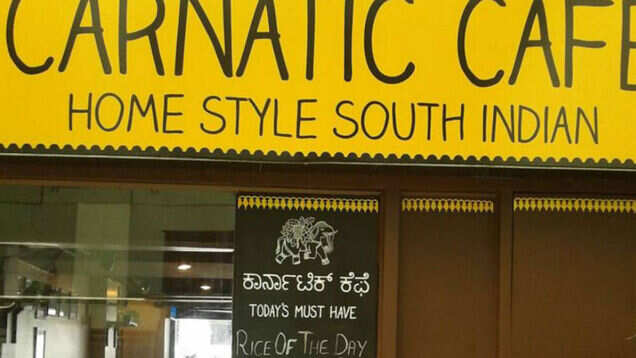 CARNATIC CAFE
HOME STYLE SOUTH INDIAN
ಕಾರ್ನಾಟಿಕ್ ಕೆಫೆ
TODAY'S MUST HAVE
RICE OF THE DAY